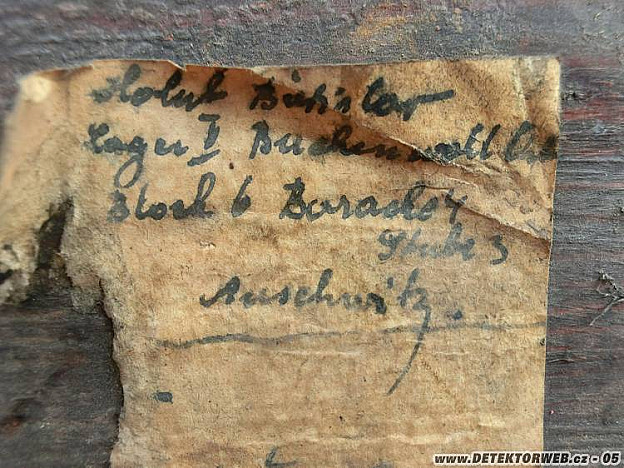 Holub Bořislav
Lager II Buchenwald
Block 6 Barack 4
Stube 3
Auschwitz.
WWW.DETEKTORWEB.cz - 05